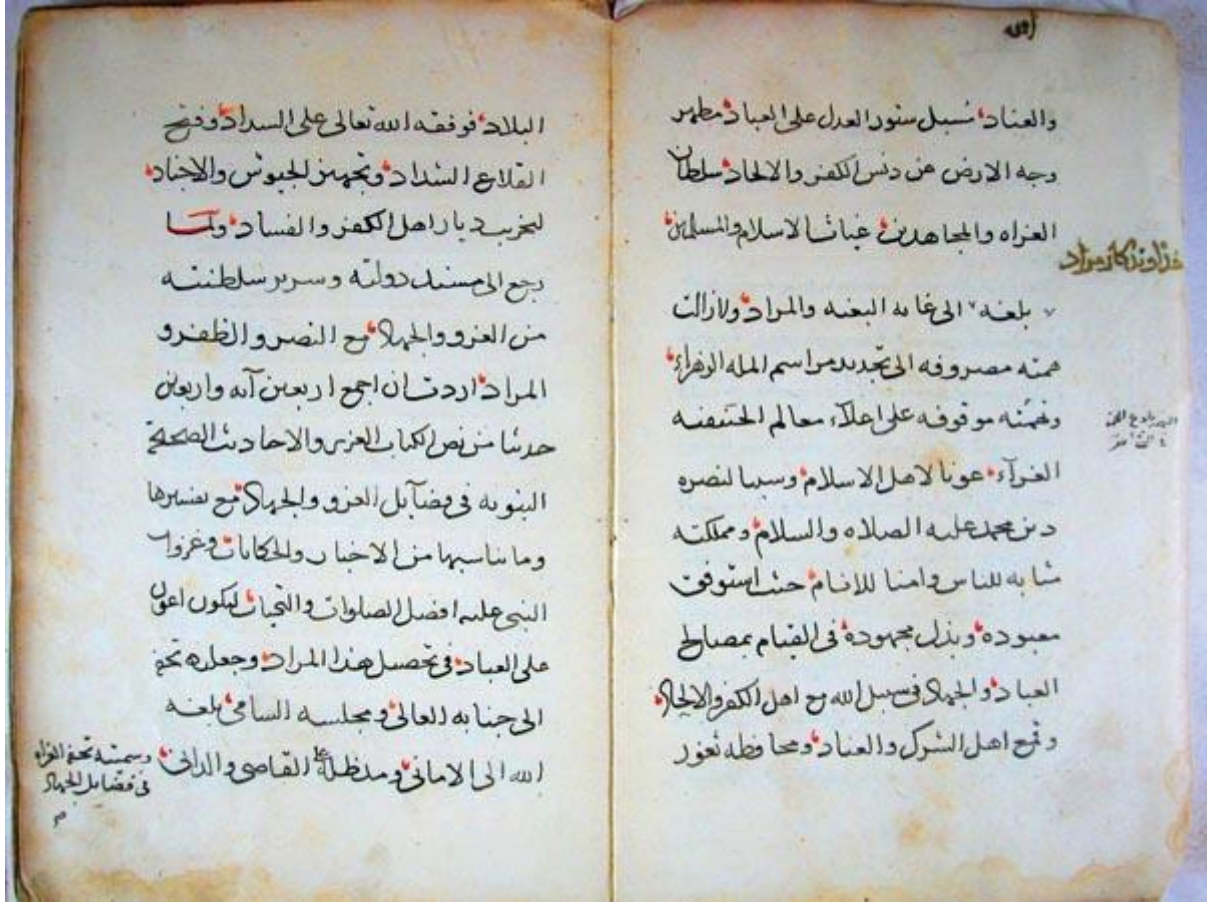 والعناد مُسبل ستور العدل على العباد مطهر
وجه الارض عن دنس الكفر والالحاد سلطان
الغزاه والمجاهدين غياث الاسلام والمسلمين
خداوندكار مراد
بلغه الى غايه البغيه والمراد ولازالت
همته مصروفه الى تجديد مراسم المله الزهراء
ونهمته موقوفه على اعلاء معالم الحنيفيه
الغرآء عونا لاهل الاسلام وسببا لنصره
دين محمد عليه الصلاه والسلام ومملكته
مثابه للناس وامنا للانام حيث استوفق
معبوده وبذل مجهوده فى القيام بمصالح
العباد والجهاد فى سبيل الله مع اهل الكفر والالحاد
وقمع اهل الشرك والعناد ومحافظه ثغور
البلاد فوفقه الله تعالى على السداد وفتح
القلاع الشداد وتجهيز الجيوش والاجناد
لتخريب ديار اهل الكفر والفساد ولما
رجع الى مسند دولته وسرير سلطنته
من الغزو والجهاد مع النصر والظفر و
المراد اردت ان اجمع اربعين آيه واربعين
حديثا من نص الكتاب العزيز والاحاديث الصحيحة
النبويه فى فضآيل الغزو والجهاد مع تفسيرها
وما يناسبها من الاخبار والحكايات وغزوات
النبى عليه افضل الصلوات والتحيات ليكون اعون
على العباد فى تحصيل هذا المراد وجعلته تحفة
الى جنابه العالى ومجلسه السامى بلغه
الله الى الامانى ومد ظله على القاصى والدانى
وسميته تحفة الغزاه
فى فضايل الجهاد